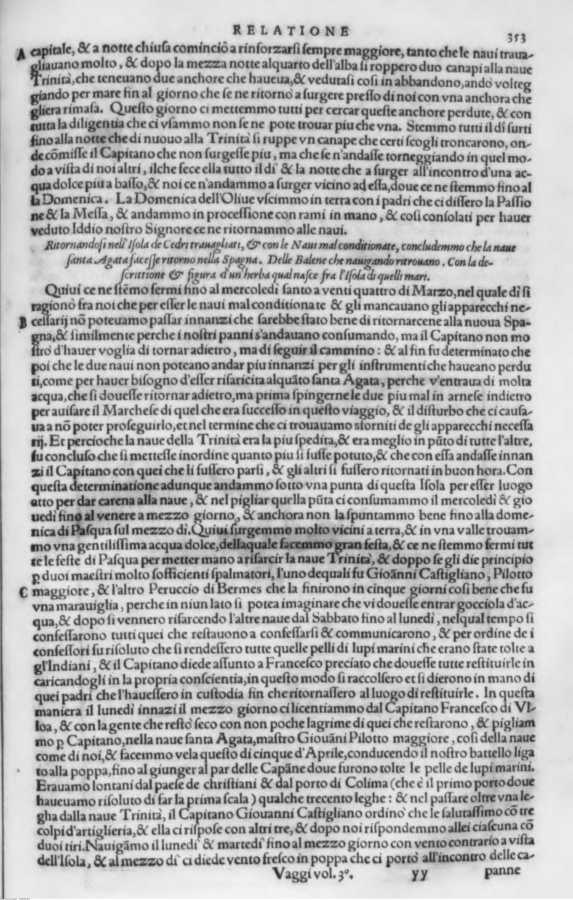 RELATIONE 353
A capitale, & a notte chiusa cominciò a rinforzarsi sempre maggiore, tanto che le naui traua-
gliauano molto, & dopo la mezza notte al quarto dell'alba si roppero duo canapi alla naue
Trinità, che teneuano due anchore che haueua, & vedutasi cosi in abbandono, andò volteg
giando per mare fin al giorno che se ne ritornò a surgere presso di noi con vna anchora che
gli era rimasa. Questo giorno ci mettemmo tutti per cercar queste anchore perdute, & con
tutta la diligentia che ci vsammo non se ne pote trouar piu che vna. Stemmo tutti il dì surti
fino alla notte che di nuouo alla Trinità si ruppe vn canape che certi scogli troncarono, on-
de cõmisse il Capitano che non surgesse piu, ma che se n'andasse torneggiando in quel mo-
do a vista di noi altri, il che fece ella tutto il dì & la notte che a surger all'incontro d'una ac-
qua dolce piu a basso, & noi ce n'andammo a surger vicino ad essa, doue ce ne stemmo fino al
la Domenica. La Domenica dell'Oliue vscimmo in terra con i padri che ci dissero la Passio
ne & la Messa, & andammo in processione con rami in mano, & cosi consolati per hauer
veduto Iddio nostro Signore ce ne ritornammo alle naui.
Ritornandosi nell'Isola de Cedri trauagliati, & con le Naui mal conditionate, concludemmo che la naue
santa Agata facesse ritorno nella Spagna. Delle Balene che nauigando ritrouano. Con la de-
scrittione & figura d'un herba qual nasce fra l'Isola di quelli mari.
Quiui ce ne stẽmo fermi fino al mercoledì santo a venti quattro di Marzo, nel quale dì si
ragionò fra noi che per esser le naui mal conditionate & gli mancauano gli apparecchi ne-
B cessarij nõ poteuamo passar innanzi che sarebbe stato bene di ritornarcene alla nuoua Spa-
gna, & similmente perche i nostri panni s'andauano consumando, ma il Capitano non mo
strò d'hauer voglia di tornar adietro, ma di seguir il cammino: & al fin fu determinato che
poi che le due naui non poteano andar piu innanzi per gli instrumenti che haueano perdu
ti, come per hauer bisogno d'esser risarcita alquãto santa Agata, perche v'entraua di molta
acqua, che si douesse ritornar adietro, ma prima spingerne le due piu mal in arnese indietro
per auisare il Marchese di quel che era successo in questo viaggio, & il disturbo che ci causa-
ua a nõ poter proseguirlo, et nel termine che ci trouauamo sforniti de gli apparecchi necessa
rij. Et percioche la naue della Trinità era la piu spedita, & era meglio in pũto di tutte l'altre,
fu concluso che si mettesse in ordine quanto piu si fusse potuto, & che con essa andasse innan
zi il Capitano con quei che li fussero parsi, & gli altri si fussero ritornati in buon hora. Con
questa determinatione adunque andammo sotto vna punta di questa Isola per esser luogo
atto per dar carena alla naue, & nel pigliar quella pũta ci consumammo il mercoledì & gio
uedì fino al venere a mezzo giorno, & anchora non la spuntammo bene fino alla dome-
nica di Pasqua sul mezzo dì. Quiui surgemmo molto vicini a terra, & in vna valle trouam-
mo vna gentilissima acqua dolce, della quale facemmo gran festa, & ce ne stemmo fermi tut
te le feste di Pasqua per metter mano a risarcir la naue Trinità, & doppo se gli die principio
p duoi maestri molto sofficienti spalmatori, l'uno de quali fu Gioãnni Castigliano, Pilotto
C maggiore, & l'altro Peruccio di Bermes che la finirono in cinque giorni cosi bene che fu
vna marauiglia, perche in niun lato si potea imaginare che vi douesse entrar gocciola d'ac-
qua, & dopo si vennero risarcendo l'altre naue dal Sabbato fino al lunedi, nel qual tempo si
confessarono tutti quei che restauono a confessarsi & communicarono, & per ordine de i
confessori fu risoluto che si rendessero tutte quelle pelli di lupi marini che erano state tolte a
gl'Indiani, & il Capitano diede assunto a Francesco preciato che douesse tutte restituirle in
caricandogli in la propria conscientia, in questo modo si raccolsero et si dierono in mano di
quei padri che l'hauessero in custodia fin che ritornassero al luogo di restituirle. In questa
maniera il lunedì innazi il mezzo giorno ci licentiammo dal Capitano Francesco di Vl-
loa, & con la gente che restò seco con non poche lagrime di quei che restarono, & pigliam
mo p Capitano, nella naue santa Agata, mastro Giouãni Pilotto maggiore, cosi della naue
come di noi, & facemmo vela questo dì cinque d'Aprile, conducendo il nostro battello liga
to alla poppa, fino al giunger al par delle Capãne doue furono tolte le pelle de lupi marini.
Erauamo lontani dal paese de christiani & dal porto di Colima (che è il primo porto doue
haueuamo risoluto di far la prima scala) qualche trecento leghe: & nel passare oltre vna le-
gha dalla naue Trinità, il Capitano Giouanni Castigliano ordinò che le salutassimo cõ tre
colpi d'artiglieria, & ella ci rispose con altri tre, & dopo noi rispondemmo allei ciascuna cõ
duoi tiri. Nauigãmo il lunedì & martedì fino al mezzo giorno con vento contrario a vista
dell'Isola, & al mezzo dì ci diede vento fresco in poppa che ci portò all'incontro delle ca-
Vaggi vol. 3º. yy panne